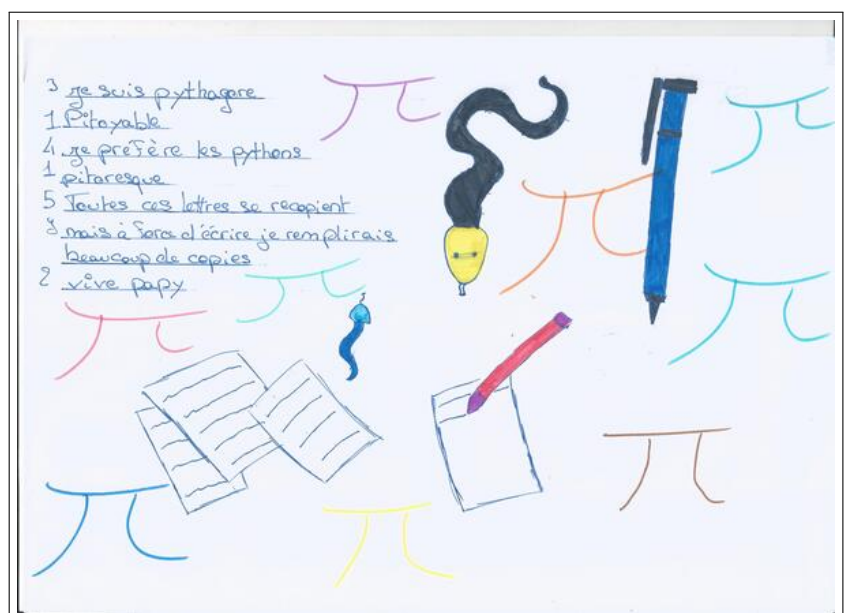 3 je suis pythagore
1 Pitoyable
4 je preFère les pythons
1 pitoresque
5 Toutes ces lettres se recopient
9 mais à force d'écrire je remplirais
beaucoup de copies
2 vive papy
π
π
π
π
π
π
π
π
π